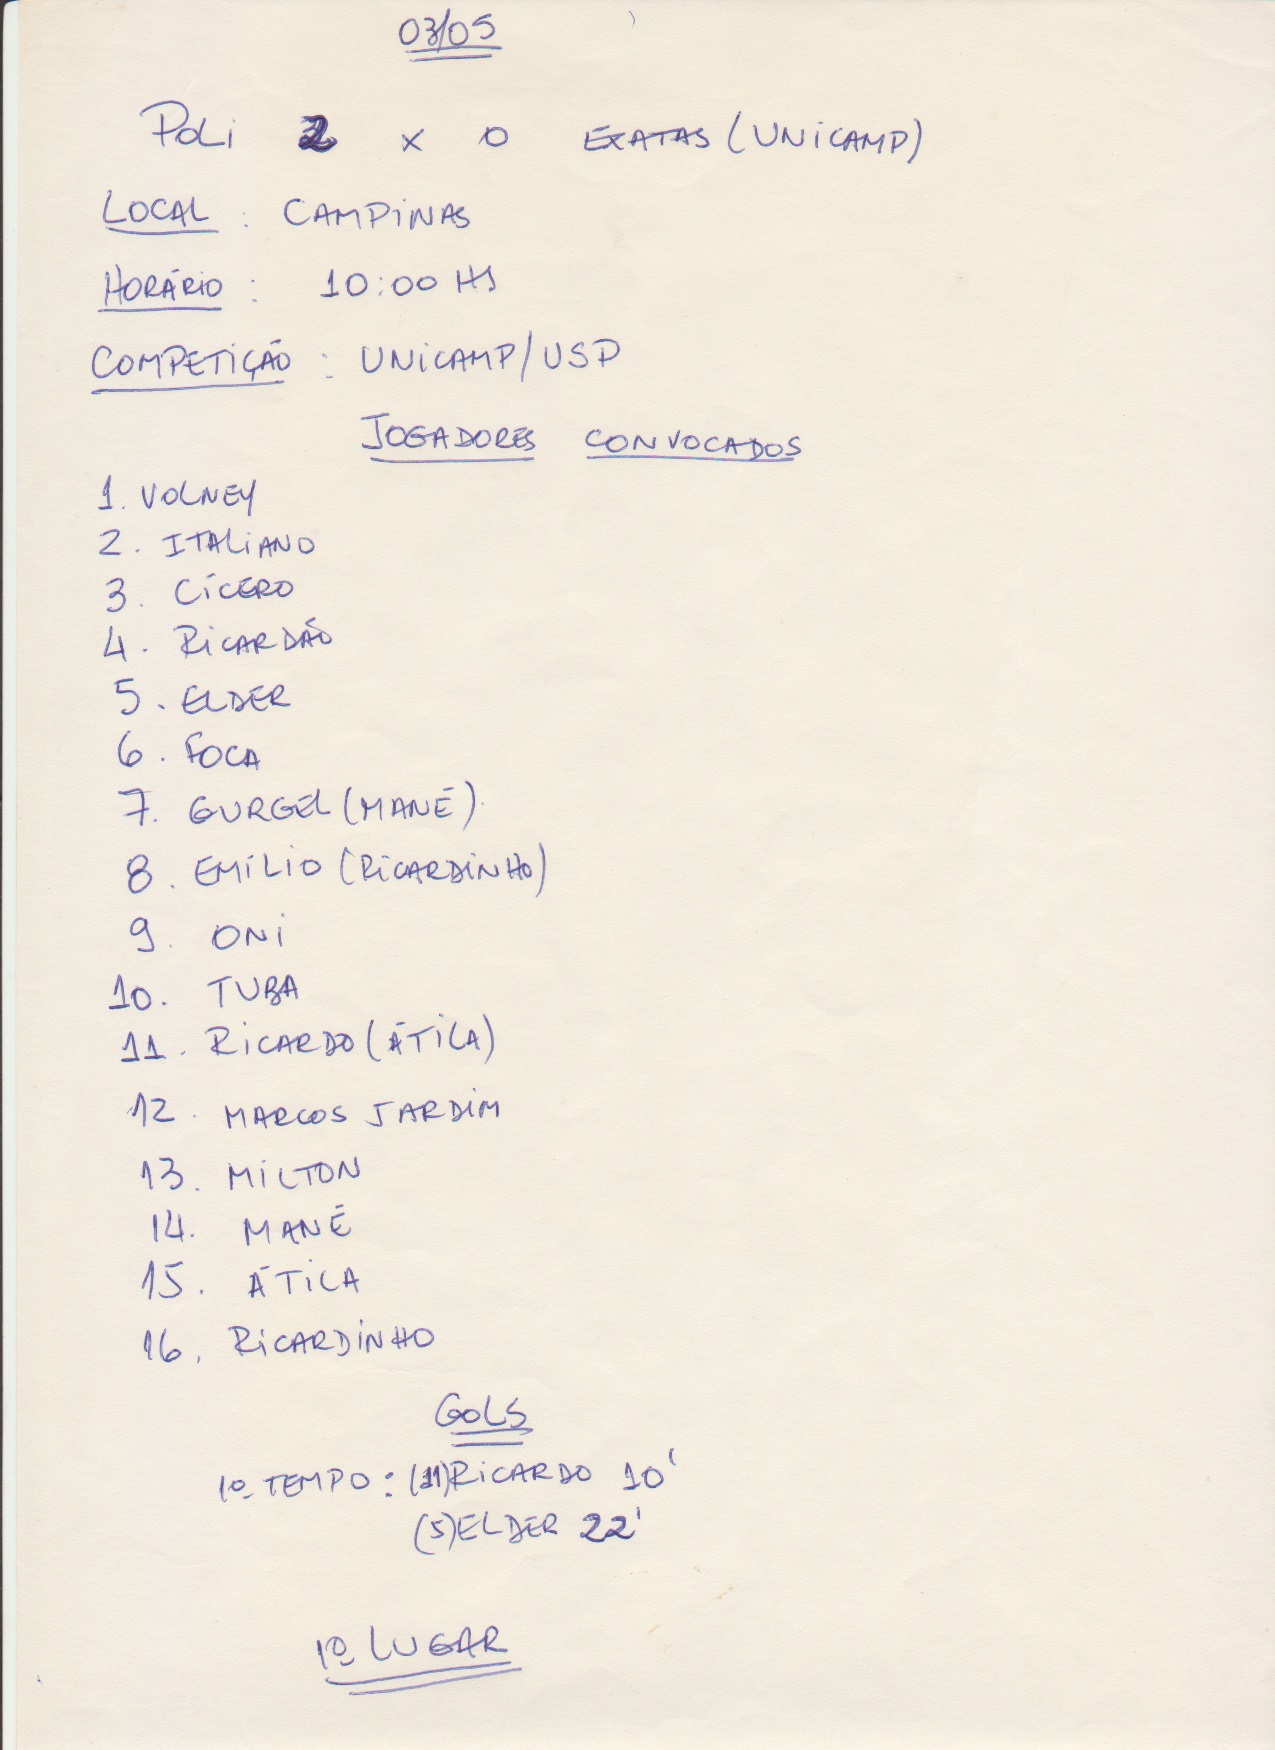 03/05
POLI 2 x 0 EXATAS (UNICAMP)
LOCAL : CAMPINAS
HORÁRIO : 10:00 HS
COMPETIÇÃO : UNICAMP/USP
JOGADORES CONVOCADOS
1. VOLNEY
2. ITALIANO
3. CÍCERO
4. RICARDÃO
5. ELDER
6. FOCA
7. GURGEL (MANÉ)
8. EMÍLIO (RICARDINHO)
9. ONI
10. TUBA
11. RICARDO (ÁTILA)
12. MARCOS JARDIM
13. MILTON
14. MANÉ
15. ÁTILA
16. RICARDINHO
GOLS
1º TEMPO : (11) RICARDO 10'
(5) ELDER 22'
1º LUGAR